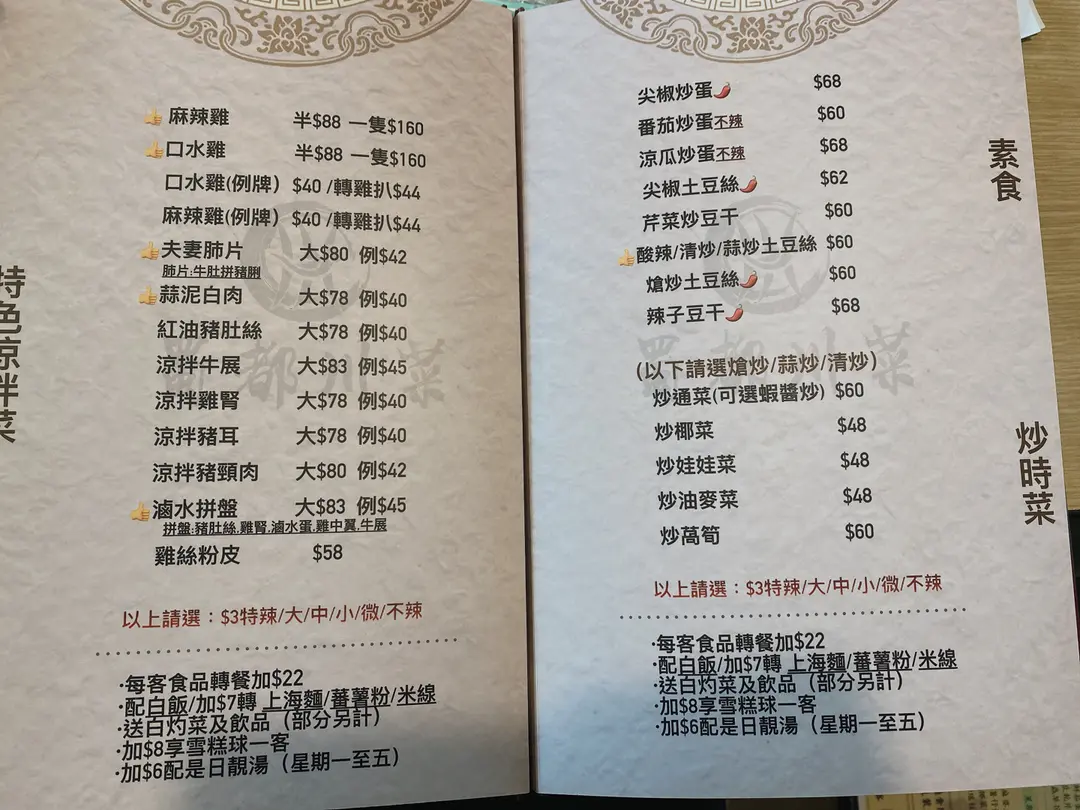 特色涼拌菜
麻辣雞 半$88 一隻$160
口水雞 半$88 一隻$160
口水雞(例牌) $40 /轉雞扒$44
麻辣雞(例牌) $40 /轉雞扒$44
夫妻肺片 大$80 例$42
肺片:牛肚拼豬脷
蒜泥白肉 大$78 例$40
紅油豬肚絲 大$78 例$40
涼拌牛展 大$83 例$45
涼拌雞腎 大$78 例$40
涼拌豬耳 大$78 例$40
涼拌豬頸肉 大$80 例$42
滷水拼盤 大$83 例$45
拼盤:豬肚絲.雞腎.滷水蛋.雞中翼.牛展
雞絲粉皮 $58
以上請選：$3特辣/大/中/小/微/不辣
·每客食品轉餐加$22
·配白飯/加$7轉 上海麵/蕃薯粉/米線
·送白灼菜及飲品（部分另計）
·加$8享雪糕球一客
·加$6配是日靚湯（星期一至五）
素食
尖椒炒蛋 $68
番茄炒蛋不辣 $60
涼瓜炒蛋不辣 $68
尖椒土豆絲 $62
芹菜炒豆干 $60
酸辣/清炒/蒜炒土豆絲 $60
熗炒土豆絲 $60
辣子豆干 $68
炒時菜
(以下請選熗炒/蒜炒/清炒)
炒通菜(可選蝦醬炒) $60
炒椰菜 $48
炒娃娃菜 $48
炒油麥菜 $48
炒萵筍 $60
以上請選：$3特辣/大/中/小/微/不辣
·每客食品轉餐加$22
·配白飯/加$7轉 上海麵/蕃薯粉/米線
·送白灼菜及飲品（部分另計）
·加$8享雪糕球一客
·加$6配是日靚湯（星期一至五）